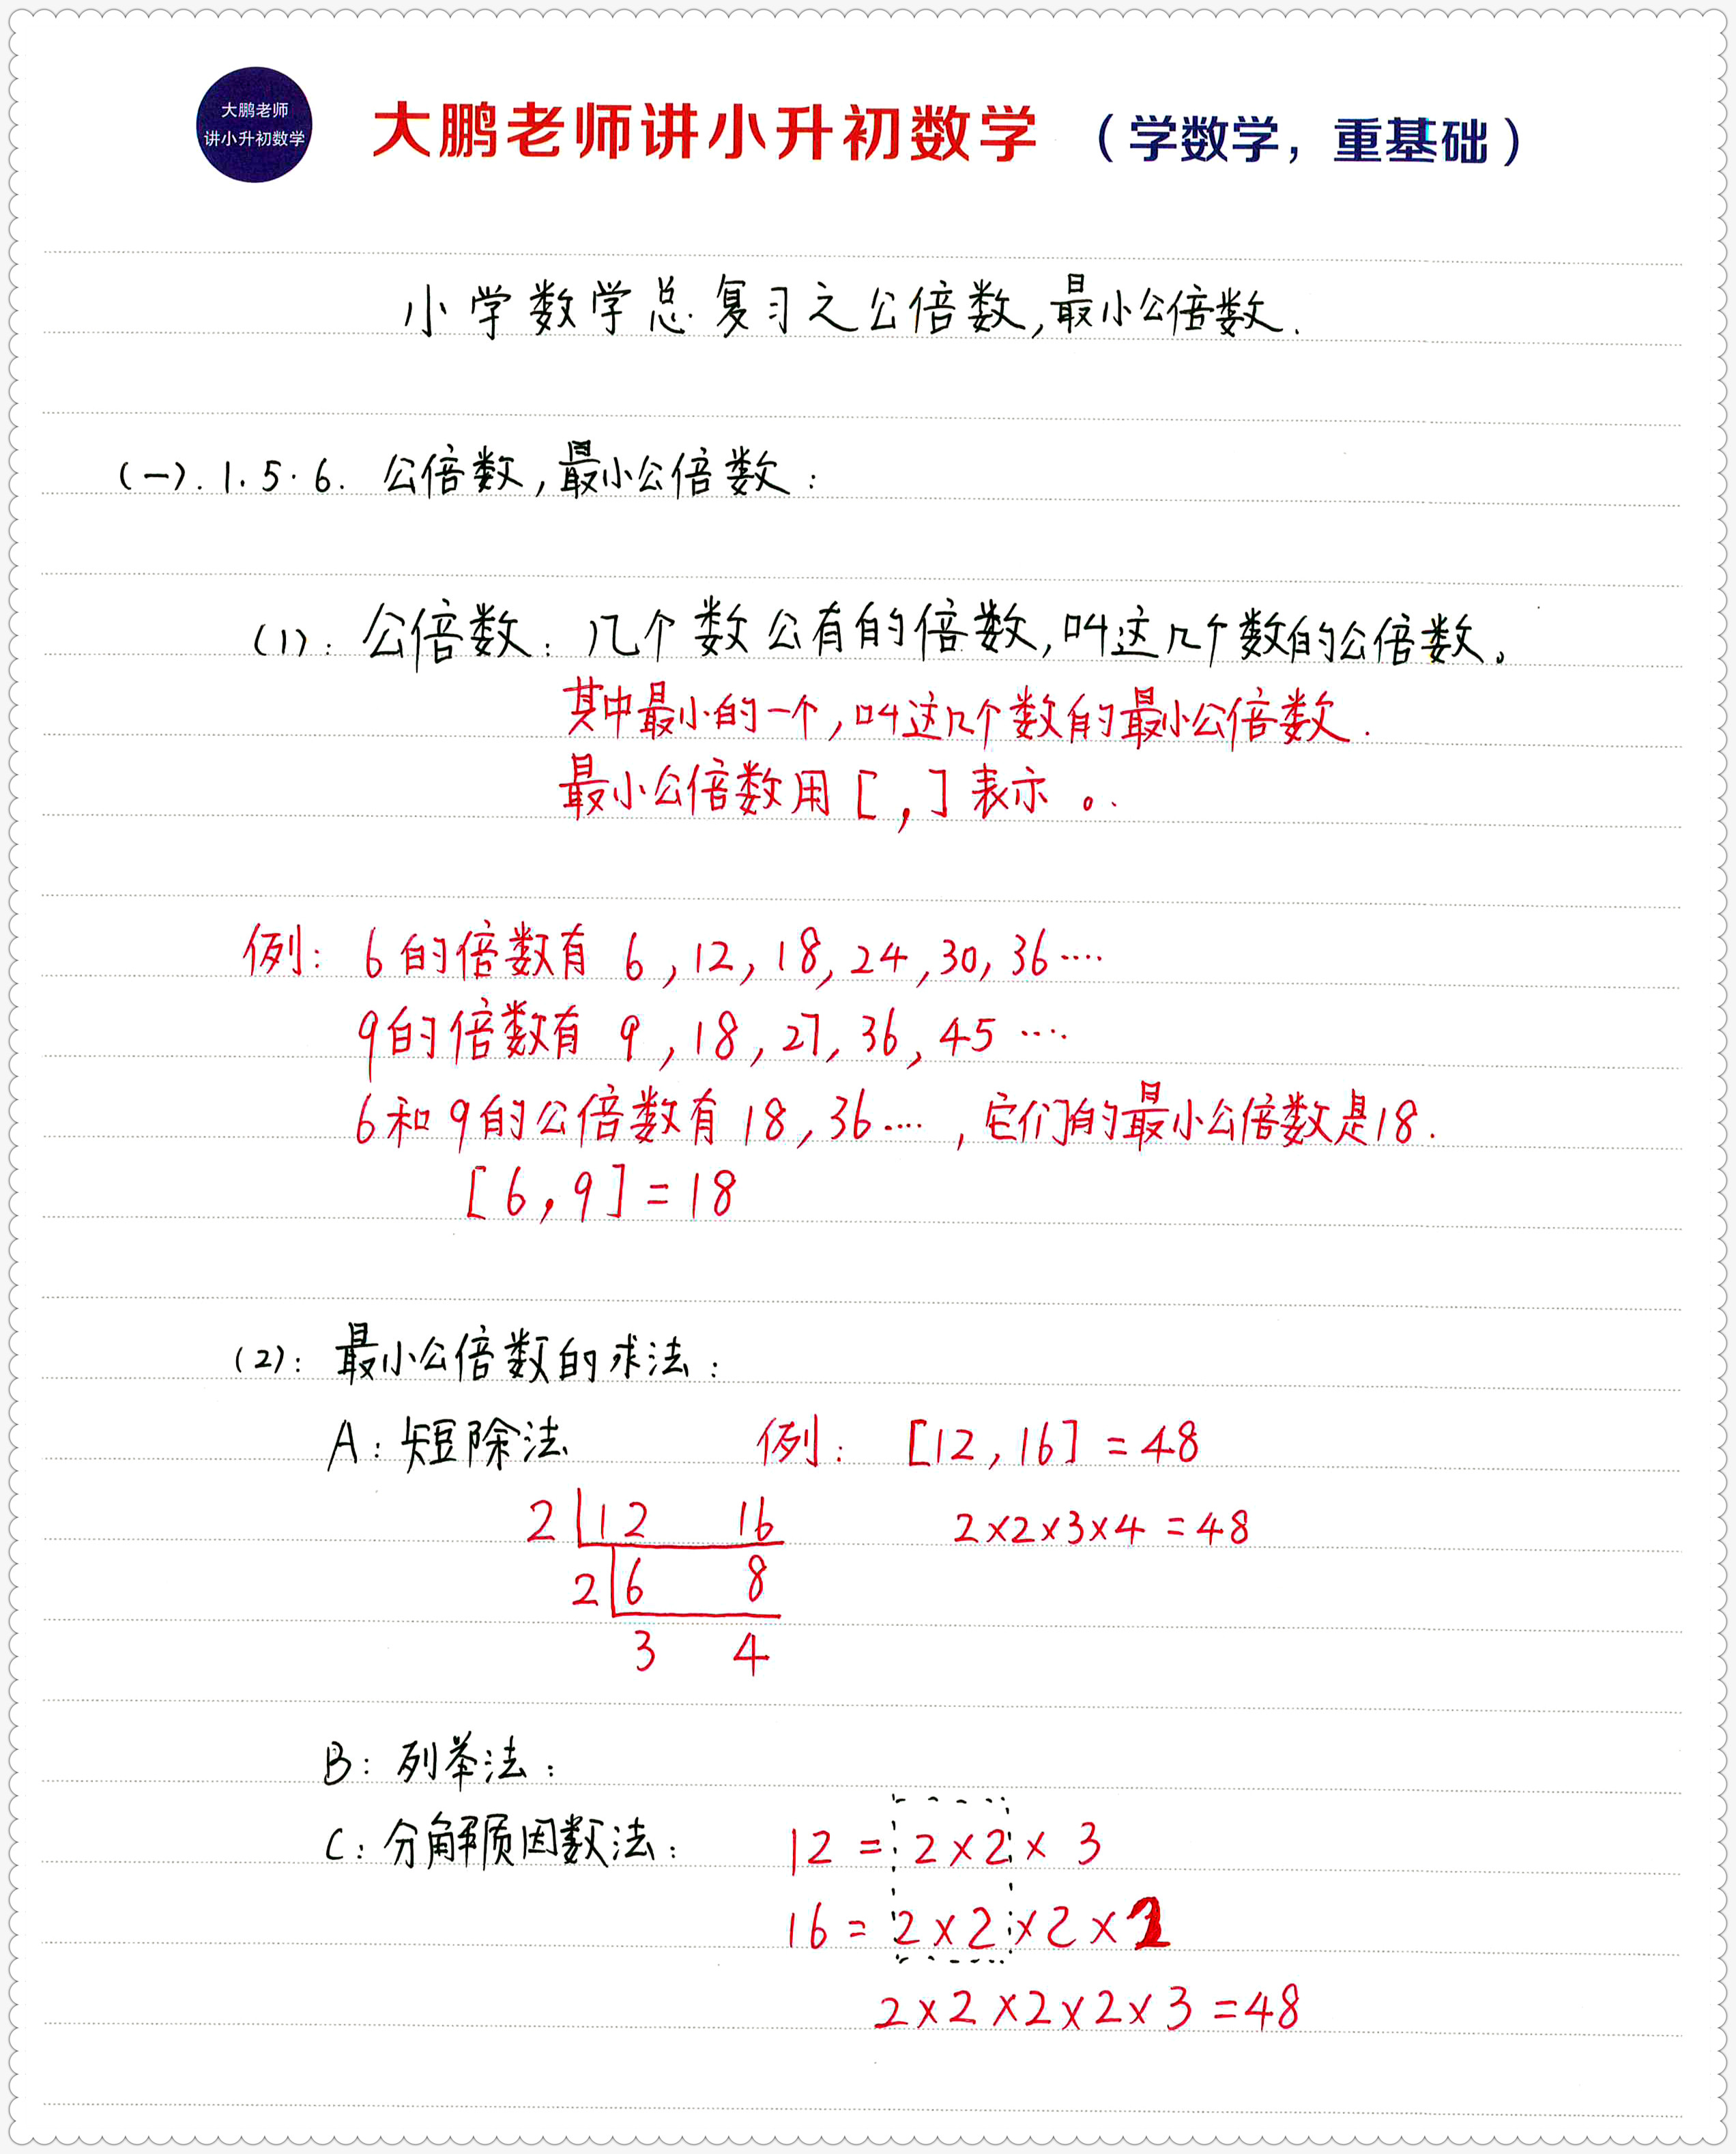 大鹏老师
讲小升初数学
大鹏老师讲小升初数学 （学数学，重基础）
小学数学总复习之公倍数,最小公倍数.
(一).1.5.6. 公倍数,最小公倍数:
(1): 公倍数: 几个数公有的倍数,叫这几个数的公倍数。
其中最小的一个,叫这几个数的最小公倍数.
最小公倍数用[ , ]表示。
例: 6的倍数有 6,12,18,24,30,36····
9的倍数有 9,18,27,36,45····
6和9的公倍数有18,36····,它们的最小公倍数是18.
[6,9]=18
(2): 最小公倍数的求法:
A: 短除法 例: [12,16]=48
2 12 16 2×2×3×4=48
2 6 8
3 4
B: 列举法:
C: 分解质因数法: 12=2×2×3
16=2×2×2×2
2×2×2×2×3=48